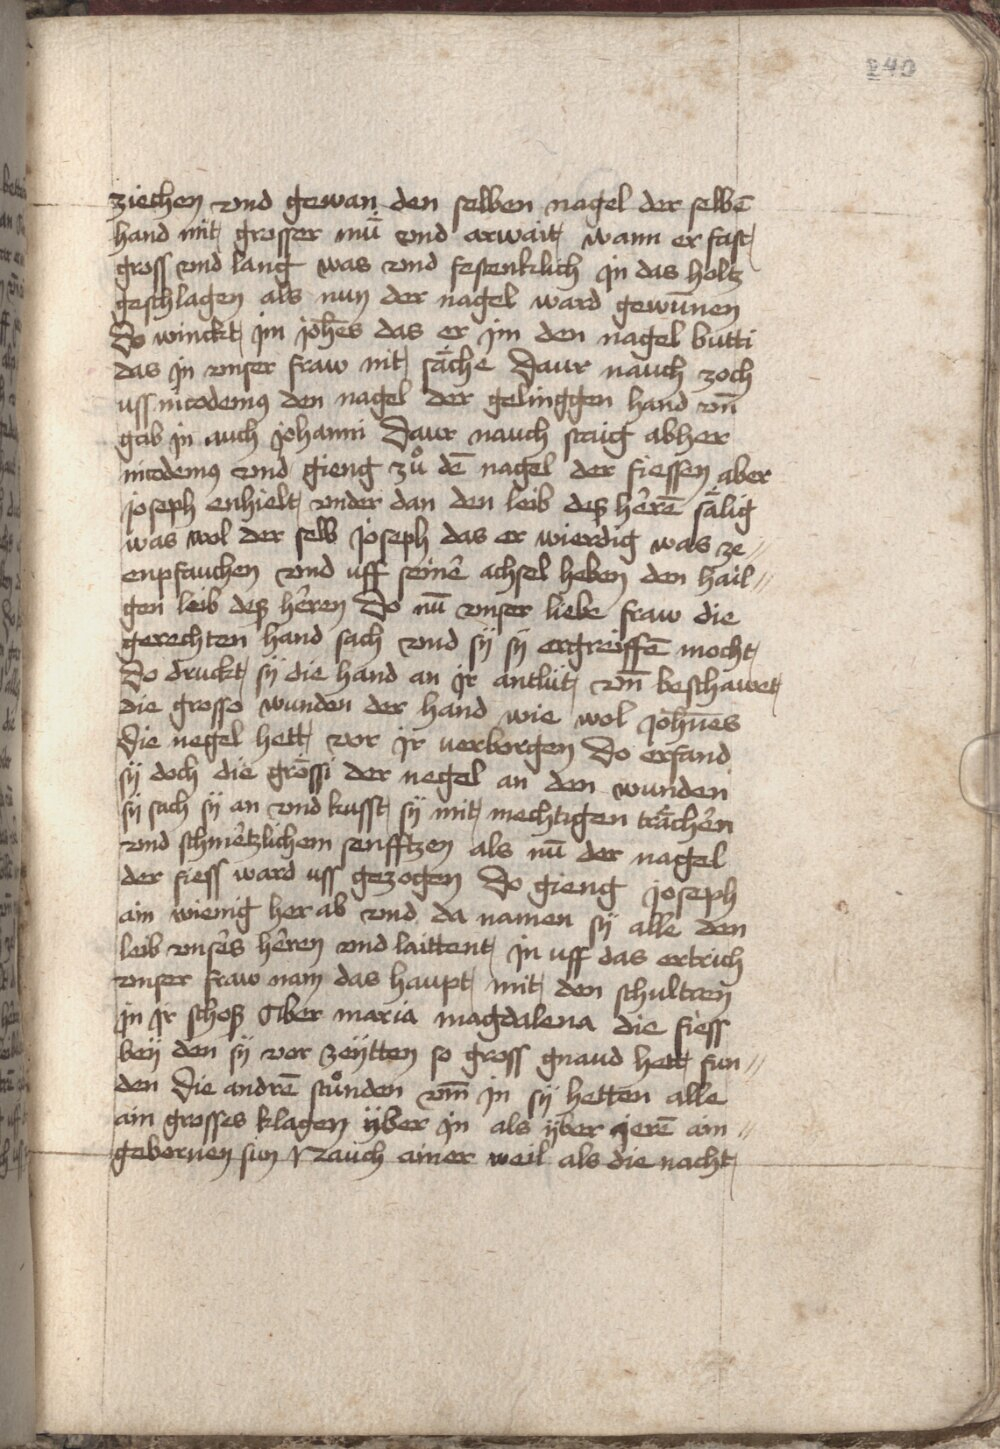 240
ziechen vnd gewan den selben nagel der selbē
hand mit grosser mü̅ vnd arwait wann er fast
gross vnd lang was vnd festenklich jn das holtz
geschlagen als nun der nagel ward gewūnen
Do winckt jm joh̄es das er jm den nagel butti
das jn vnser fraw nit sa̎che Daur nauch zoch
uss nicodemꝰ den nagel der gelinggen hand vn̄
gab in auch johanni Daur nauch staig abher
nicodemꝰ vnd gieng zů dē nagel der fiessen aber
joseph enhielt vnder dan den leib deß hērē sa̎lig
was wol der selb joseph das er wierdig was ze //
enpfauchen vnd uff seinē achsel heben den hail //
gen leib deß hēren Do nū vnser liebe fraw die
gerechten hand sach vnd sÿ sÿ ergreiffē mocht
Do druckt sÿ die hand an jr antlüt vn̄ beschawet
die grosse wunden der hand wie wol joh̄nes
die negel hett vor jr verborgen Do erfand
sÿ doch die grössi der negel an den wunden
sÿ sach sÿ an vnd kusst sÿ mit mechtigen tra̎chērn
vnd schmērtzlichem senfftzen als nū der nagel
der fiess ward uss gezogen Do gieng joseph
ain wienig her ab vnd da namen sÿ alle den
leib vnsērs hēren vnd laittent jn uff das ertrich
vnser fraw nam das haupt mit den schultren
jn jr schoß Aber maria magdalena die fiess
beÿ den sÿ vor zeÿtten so gross gnaud hett fun //
den die andrē stůnden vm̄ jn sÿ hetten alle
ain grosses klagen ÿber jn als ÿber jerē ain //
gebornen sun Nauch ainer weil als die nacht